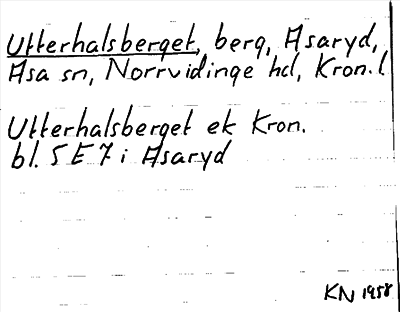 Utterhalsberget, berg, Asaryd,
Asa sn, Norrvidinge hd, Kron. l.
Utterhalsberget ek Kron.
bl. 5 E 7 i Asaryd
KN 1958